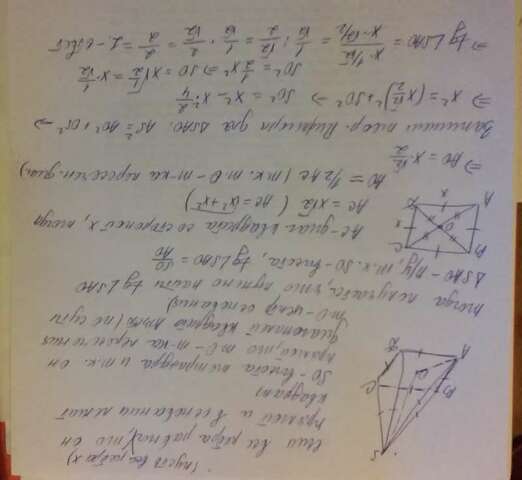 (пусть все ребра x)
если все ребра равны, то он
прямой и в основании лежит
квадрат
SO - высота пирамиды и т.к. он
прямой, то т. O - т-ка пересечения
диагоналей квадрата (по сути
т. O - центр основания)
тогда получается, что нужно найти tg ∠SAO
Δ SAO - п/у, т.к. SO - высота, tg ∠SAO = SO/AO
AC - диаг. квадрата со стороной x, тогда
AC = x√2 ( AC = √x²+x² )
AO = 1/2 AC ( т.к. т. O - т-ка пересечен. диаг.)
⇒ AO = x·√2/2
Запишем теор. Пифагора для ΔSAO: AS² = AO² + OS² ⇒
⇒ x² = (x√2/2)² + SO² ⇒ SO² = x² - x²·2/4
SO² = 1/2 x² ⇒ SO = x√1/2 = x·1/√2
⇒ tg ∠SAO = x·1/√2 / x·√2/2 = 1/√2 : √2/2 = 1/√2 · 2/√2 = 2/2 = 1 - ответ
S
A
B
C
D
O
A
B
C
D
O
x
x